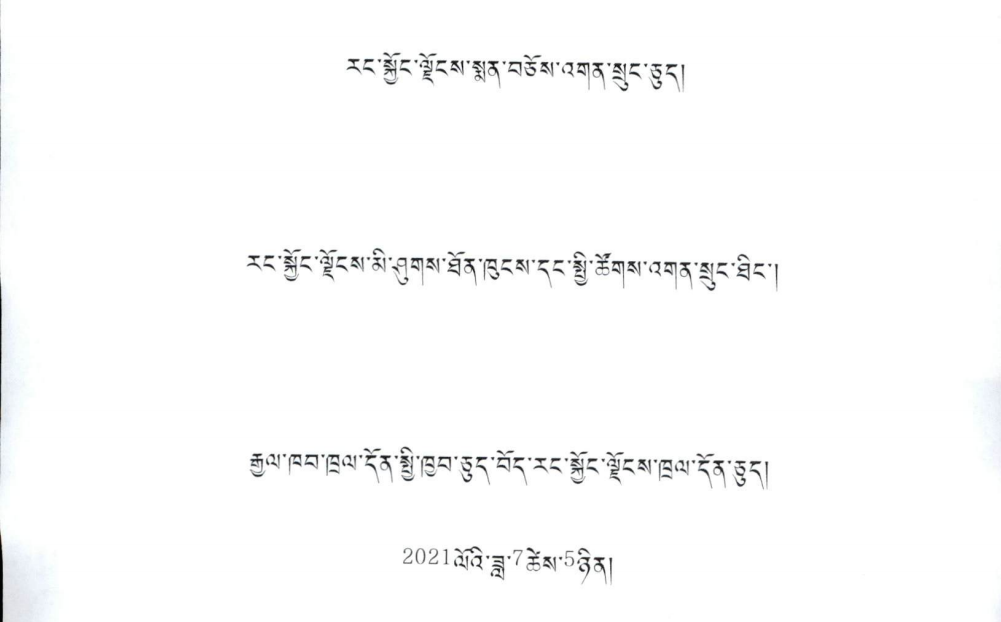 རང་སྐྱོང་ལྗོངས་སྨན་བཅོས་འགན་སྲུང་ཅུད།
རང་སྐྱོང་ལྗོངས་མི་ཤུགས་ཐོན་ཁུངས་དང་སྤྱི་ཚོགས་འགན་སྲུང་ཐིང་།
རྒྱལ་ཁབ་ཁྲལ་དོན་སྤྱི་ཁྱབ་ཅུད་བོད་རང་སྐྱོང་ལྗོངས་ཁྲལ་དོན་ཅུད།
2021ལོའི་ཟླ་7ཚེས་5ཉིན།